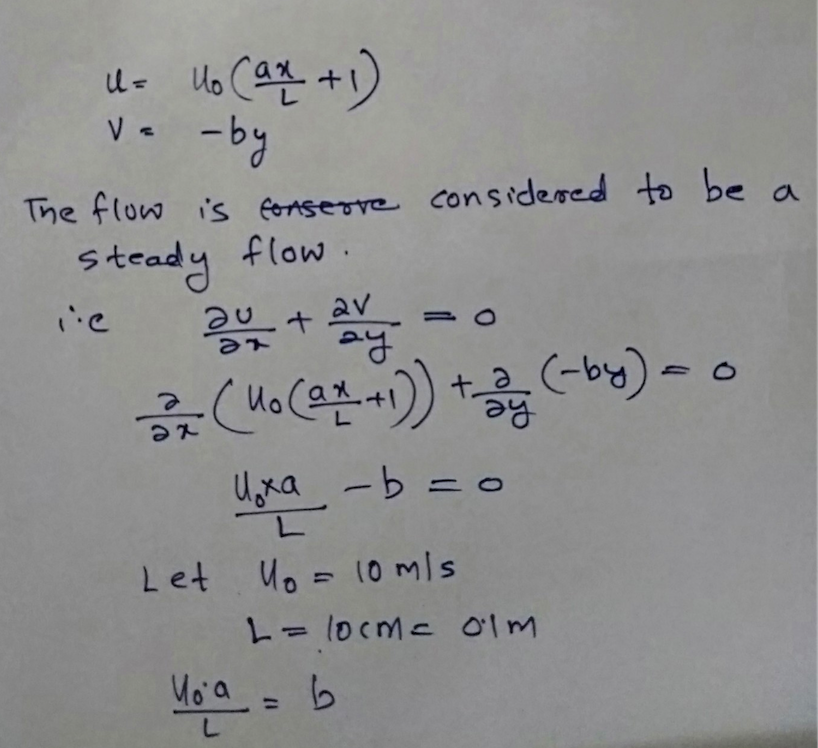 u = u₀(ax/L + 1)
v = -by
The flow is conserve considered to be a
steady flow.
i.e ∂u/∂x + ∂v/∂y = 0
∂/∂x (u₀(ax/L + 1)) + ∂/∂y (-by) = 0
u₀×a/L - b = 0
Let u₀ = 10 m/s
L = 10cm = 0.1m
u₀.a/L = b